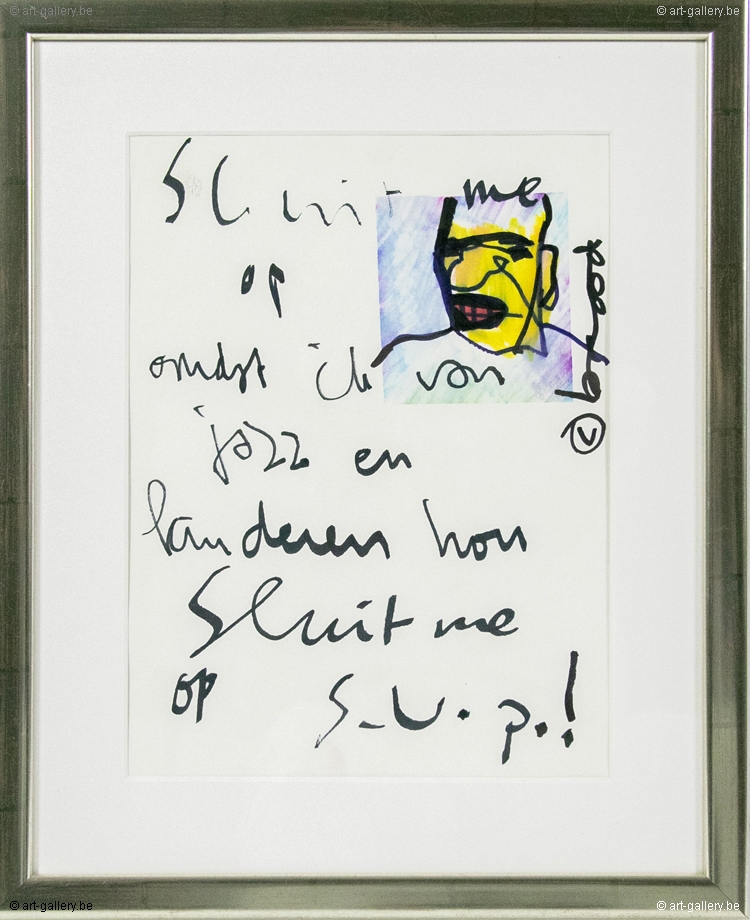 © art-gallery.be © art-gallery.be
Sluit me
op
omdat ik van
jazz en
kanderen hou
Sluit me
op S.V.p.!
© art-gallery.be © art-gallery.be